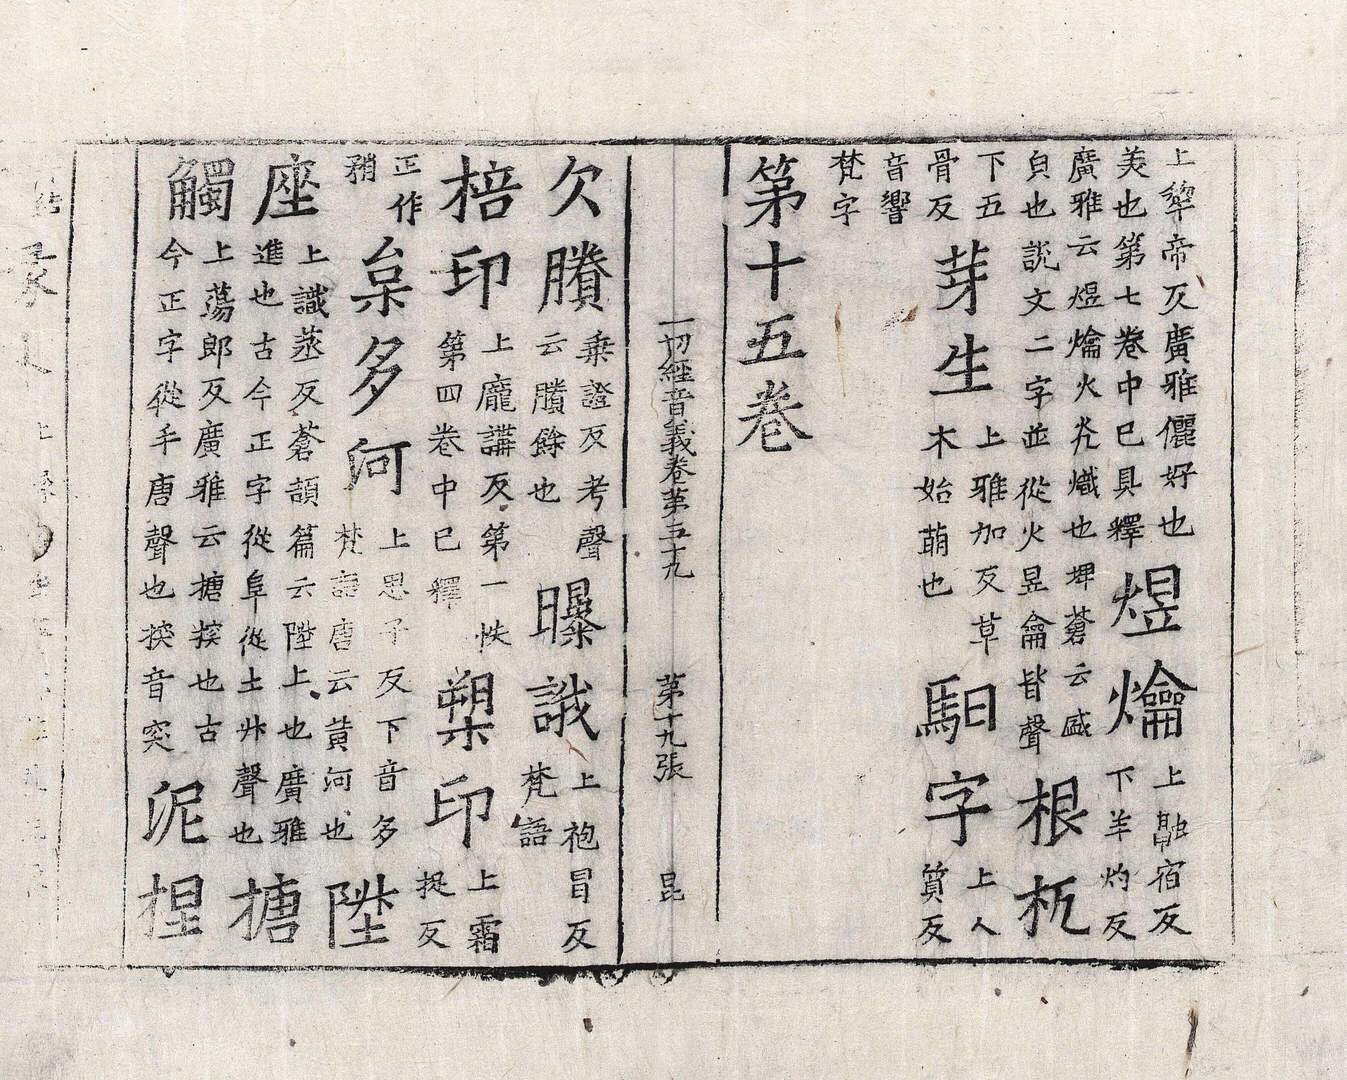 上犂帝反廣雅儷好也
美也第七卷中已具釋
煜爚
上融宿反
下羊灼反
廣雅云煜爚火光熾也埤蒼云盛
皃也説文二字並從火昱龠皆聲
根杌
下五
骨反
芽生
上雅加反草
木始萌也
馹字
上人
質反
音響
梵字
第十五卷
一切經音義卷第五十九 第十九張 昆
欠賸
乗證反考聲
云賸餘也
曝誐
上袍冒反
梵語
棓印
上龐講反第一帙
第四卷中已釋
槊印
上霜
捉反
正作
矟
枲多河
上思子反下音多
梵語唐云黄河也
陞
座
上識蒸反蒼頡篇云陞上也廣雅
進也古今正字從阜從土升聲也
搪
觸
上蕩郎反廣雅云搪揬也古
今正字從手唐聲也揬音突
泥捏